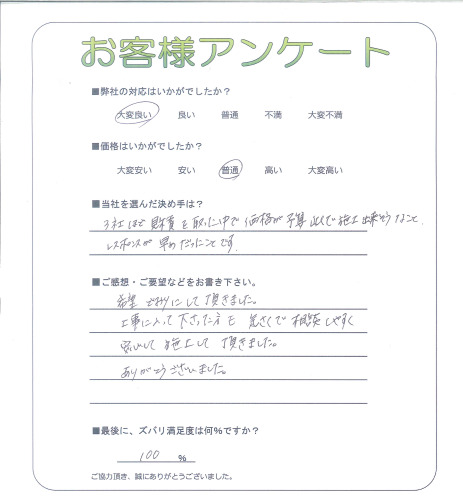 お客様アンケート
■弊社の対応はいかがでしたか？
大変良い 良い 普通 不満 大変不満
■価格はいかがでしたか？
大変安い 安い 普通 高い 大変高い
■当社を選んだ決め手は？
3社ほど見積を取った中で価格が予算以下で施工出来そうなこと
レスポンスが早めだったことです。
■ご感想・ご要望などをお書き下さい。
希望にして頂きました。
工事に入って下さった方も気さくで相談しやすく
安心して施工して頂きました。
ありがとうございました。
■最後に、ズバリ満足度は何％ですか？
100 ％
ご協力頂き、誠にありがとうございました。